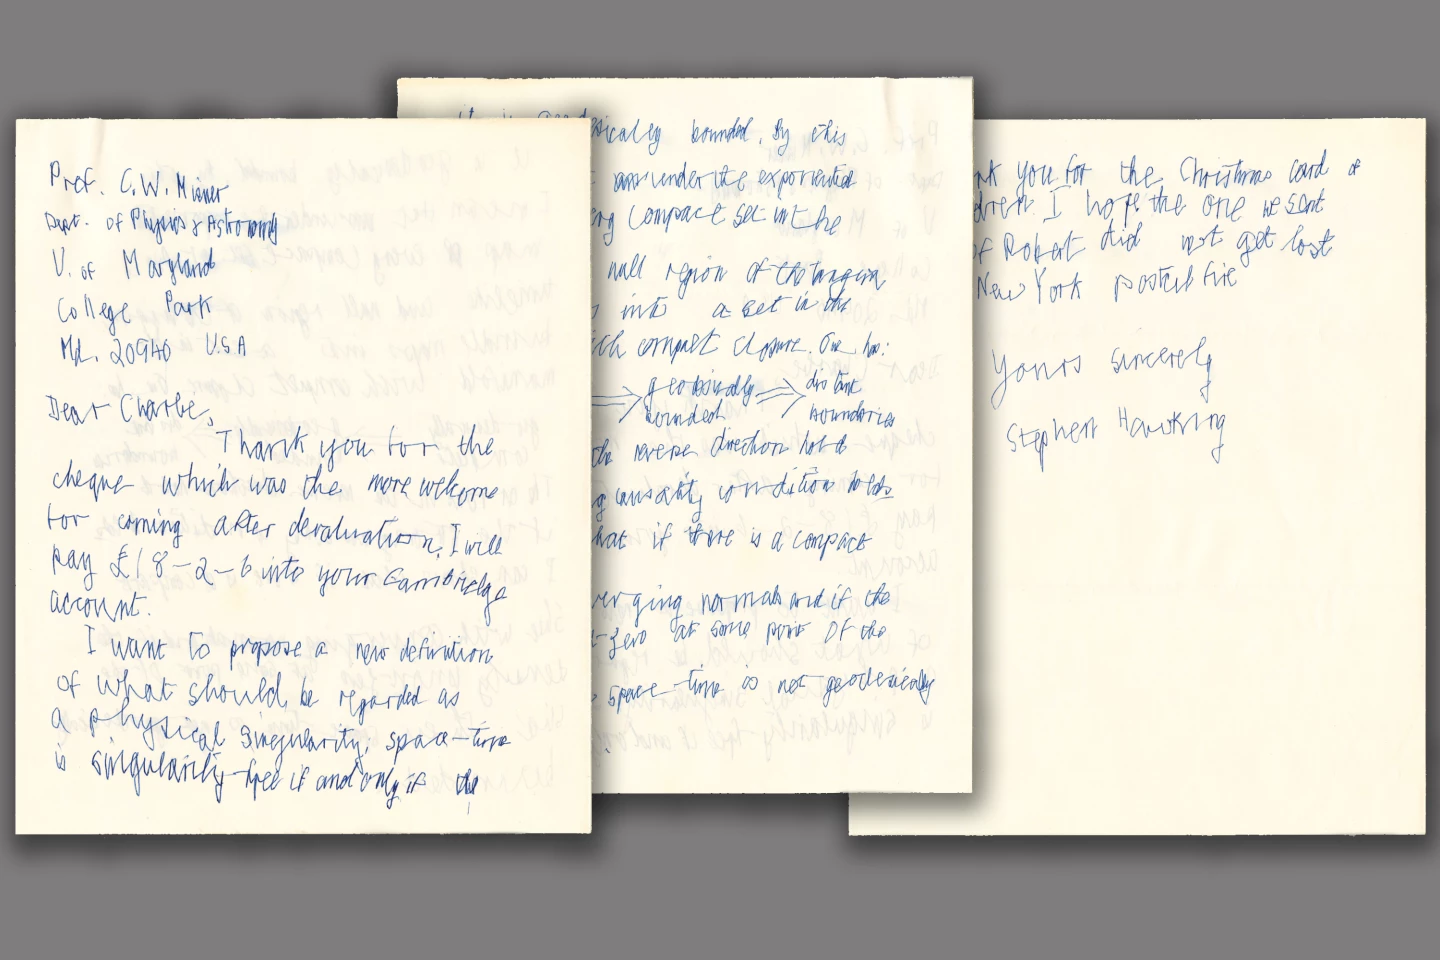 Prof. C. W. Misner
Dept. of Physics & Astronomy
U. of Maryland
College Park
Md. 20940 U.S.A
Dear Charlie,
Thank you for the
cheque which was the more welcome
for coming after devaluation, I will
pay £18-2-6 into your Cambridge
account.
I want to propose a new definition
of what should be regarded as
a physical singularity: space-time
is singularity-free if and only if the
bounded. By this
under the exponential
compact set in the
null region of the tangent
into a set in the
compact closure. One has:
⟹ geodesically ⟹ distinct
bounded boundaries
the reverse direction
causality condition holds
that if there is a compact
normals and if the
zero at some point of the
space-time is not geodesically
you for the Christmas card of
I hope the one we sent
of Robert did not get lost
New York postal fire
Yours sincerely
Stephen Hawking